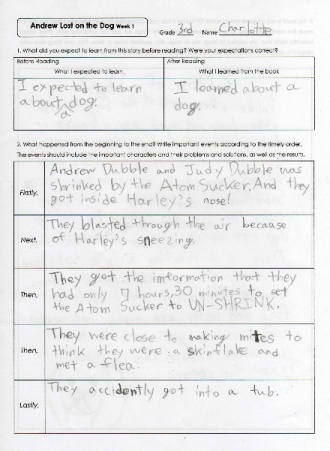 Andrew Lost on the Dog Week 1
Grade 3rd Name Charlotte
1. What did you expect to learn from this story before reading? Were your expectations correct?
Before Reading After Reading
What I expected to learn What I learned from the book
I expected to learn I learned about a
about a dog. dog.
2. What happened from the beginning to the end? Write important events according to the timely order.
The events should include the important characters and their problems and solutions, as well as the results.
Firstly, Andrew Dubble and Judy Dubble was
shrinked by the Atom Sucker. And they
got inside Harley's nose!
Next, They blasted through the air because
of Harley's sneezing.
Then, They got the imformation that they
had only 7 hours, 30 minutes to set
the Atom Sucker to UN-SHRINK.
Then, They were close to making mites to
think they were a skinflake and
met a flea.
Lastly, They accidently got into a tub.